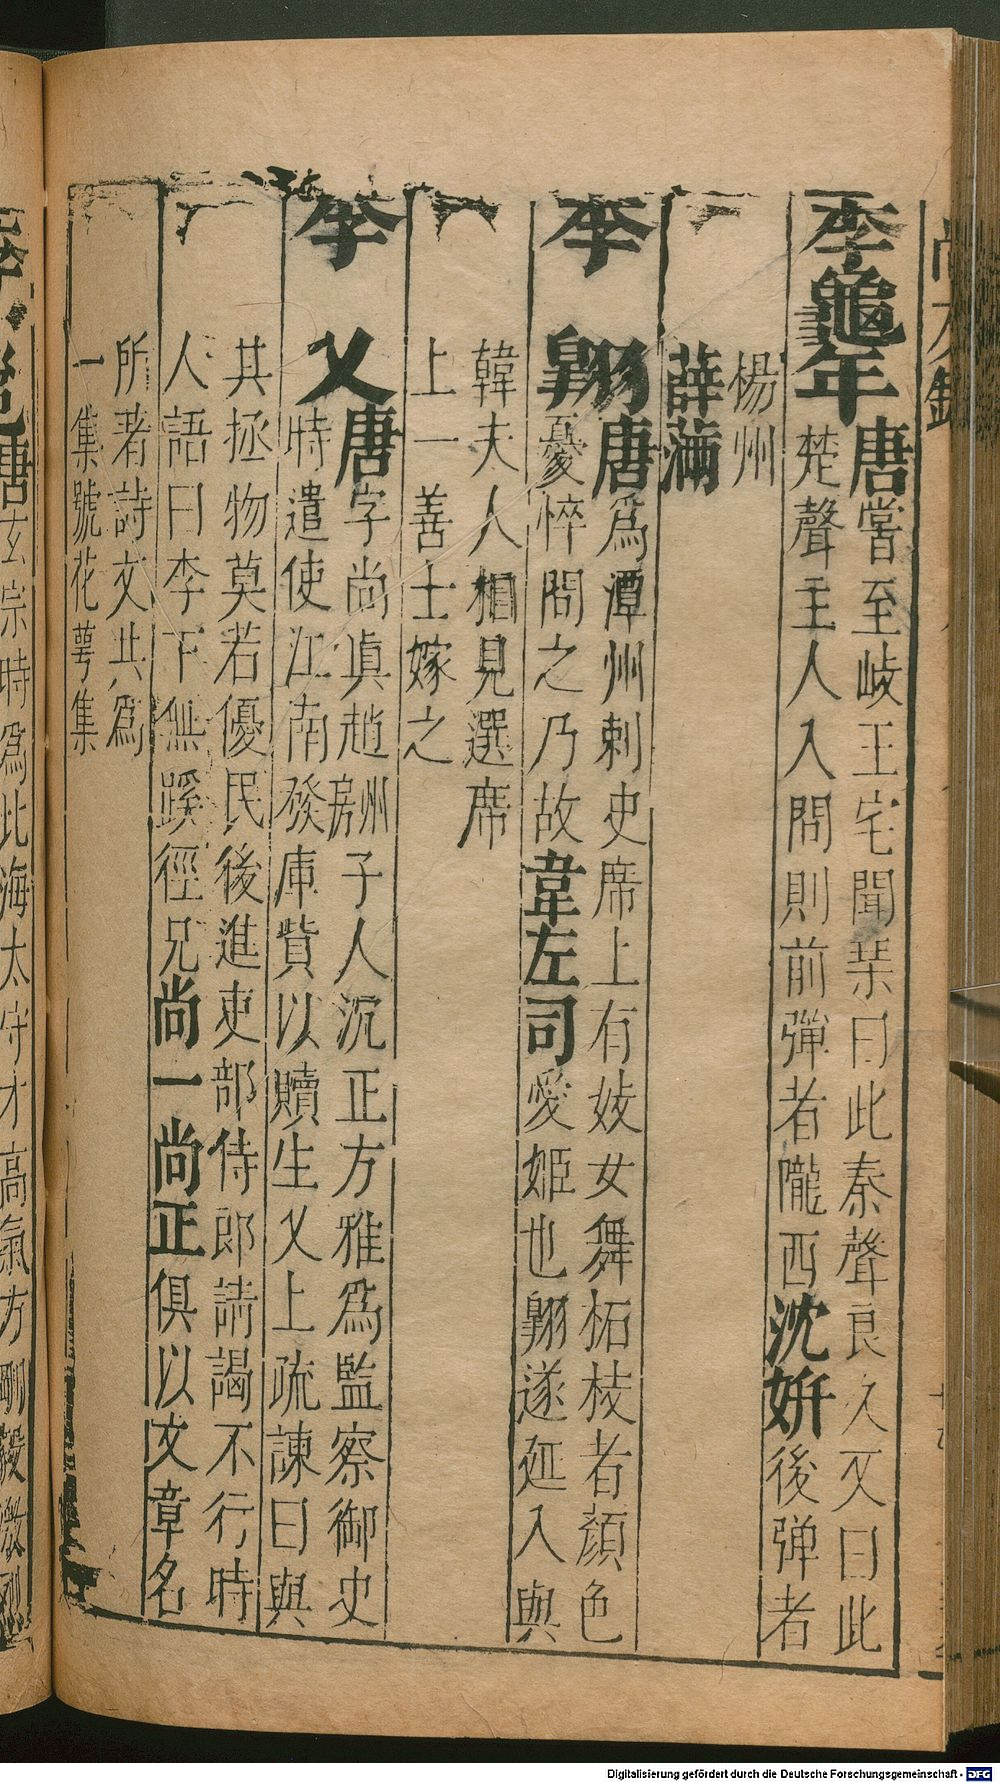 尚友錄
李龜年
唐嘗至岐王宅聞琹曰此秦聲良久又曰此
楚聲主人入問則前彈者隴西沈妍後弹者
楊州
薛滿
李翱
唐為潭州剌史席上有妓女舞柘枝者顏色
憂悴問之乃故韋左司愛姬也翱遂延入與
韓夫人相見選席
上一善士嫁之
李乂
唐字尚真趙州房子人沉正方雅為監察御史
時遣使江南發庫貲以贖生乂上疏諫曰與
其拯物莫若優民後進吏部侍郎請謁不行時
人語曰李下無蹊徑兄尚一尚正俱以文章名
所著詩文共為
一集號花萼集
唐玄宗時為北海太守才高氣方剛毅激烈
Digitalisierung gefördert durch die Deutsche Forschungsgemeinschaft - DFG